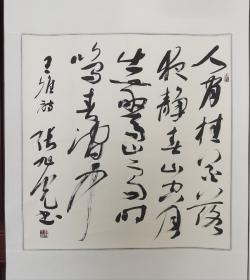 人闲桂花落
夜静春山空月
出惊山鸟时
鸣春涧中
王维诗 张旭光书